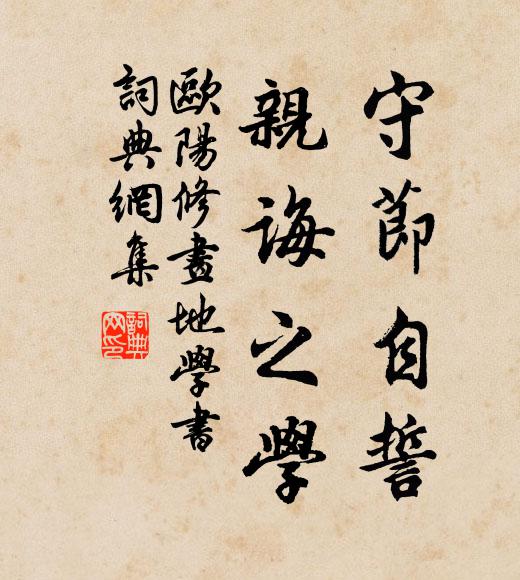 守節自誓
親誨之學
歐陽修畫地學書
詞典網集
詞典
网印